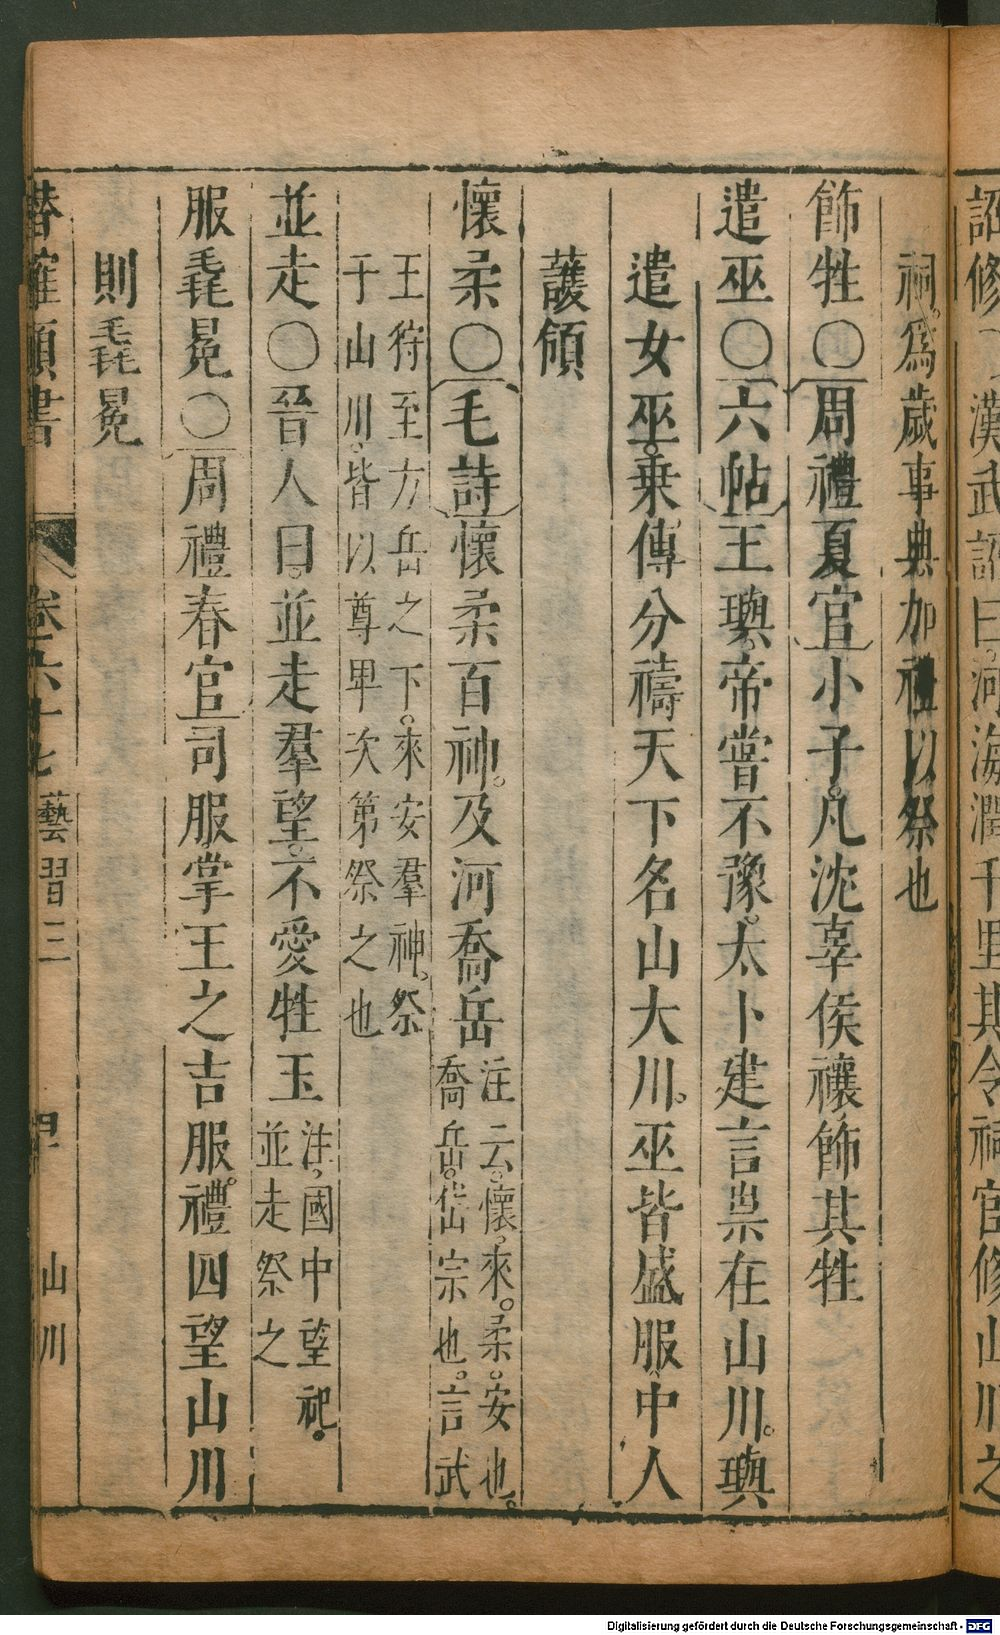 詔修　漢武詔曰河海潤千里其令祠官修山川之
祠爲歲事典加禮以祭也
飾牲〇周禮夏官小子凡沈辜侯禳飾其牲
遣巫〇六帖王璵帝嘗不豫太卜建言祟在山川璵
遣女巫乘傳分禱天下名山大川巫皆盛服中人
護領
懷柔〇毛詩懷柔百神及河喬岳注云懷來柔安也
喬岳岱宗也言武
王狩至方岳之下來安羣神祭
于山川皆以尊卑次第祭之也
並走〇晉人曰並走羣望不愛牲玉注國中望祀
並走祭之
服毳冕〇周禮春官司服掌王之吉服禮四望山川
則毳冕
卷六十七　藝習三　山川
Digitalisierung gefördert durch die Deutsche Forschungsgemeinschaft - DFG